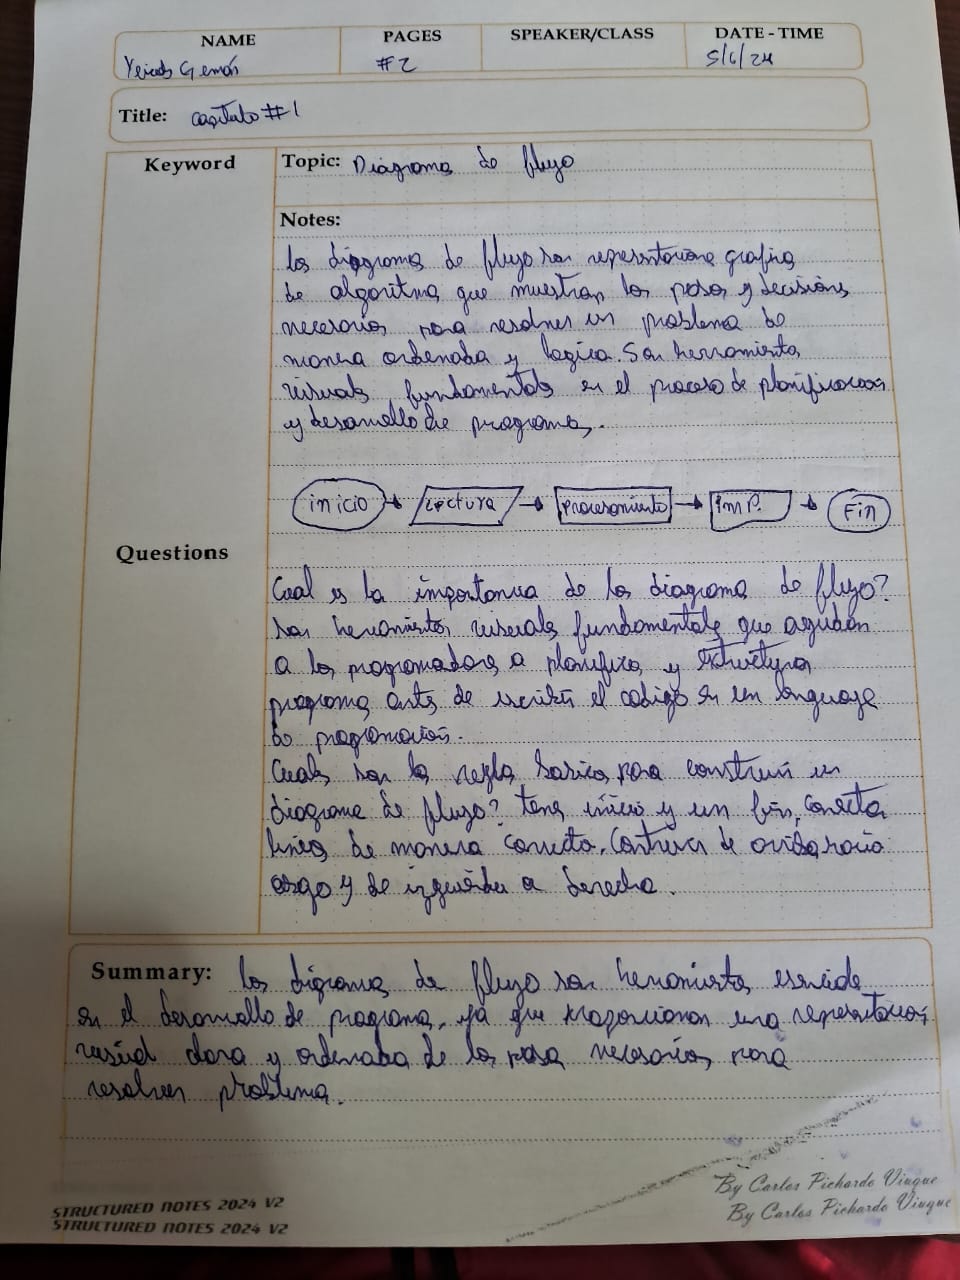 NAME PAGES SPEAKER/CLASS DATE - TIME
Germán #2 5/6/24
Title: capitulo #1
Keyword Topic: Diagrama de flujo
Notes:
Los diagramas de flujo son representaciones grafica
de algoritma que muestran los pasos y decisiones
necesarios para resolver un problema de
manera ordenada y logica. Son herramientas
visuales fundamentales en el proceso de planificacion
y desarrollo de programas.
inicio Lectura procesamiento imp. Fin
Questions
Cual es la importancia de los diagrama de flujo?
son herramientas visuales fundamentales que ayudan
a los programadores a planificar y estructurar
programa antes de escribir el codigo en un lenguaje
de programación.
Cuales son las regla basicas para construir un
diagrama de flujo? tener inicio y un fin, conectar
lineas de manera correcta. de arriba hacia
abajo y de izquierda a derecha.
Summary: los digramas de flujo son herramientas esenciales
en el desarrollo de programas, ya que proporcionan una representacion
visual clara y ordenada de los pasos necesarios para
resolver problema.
STRUCTURED NOTES 2024 V2 By Carlos Pichardo Viuque
STRUCTURED NOTES 2024 V2 By Carlos Pichardo Viuque